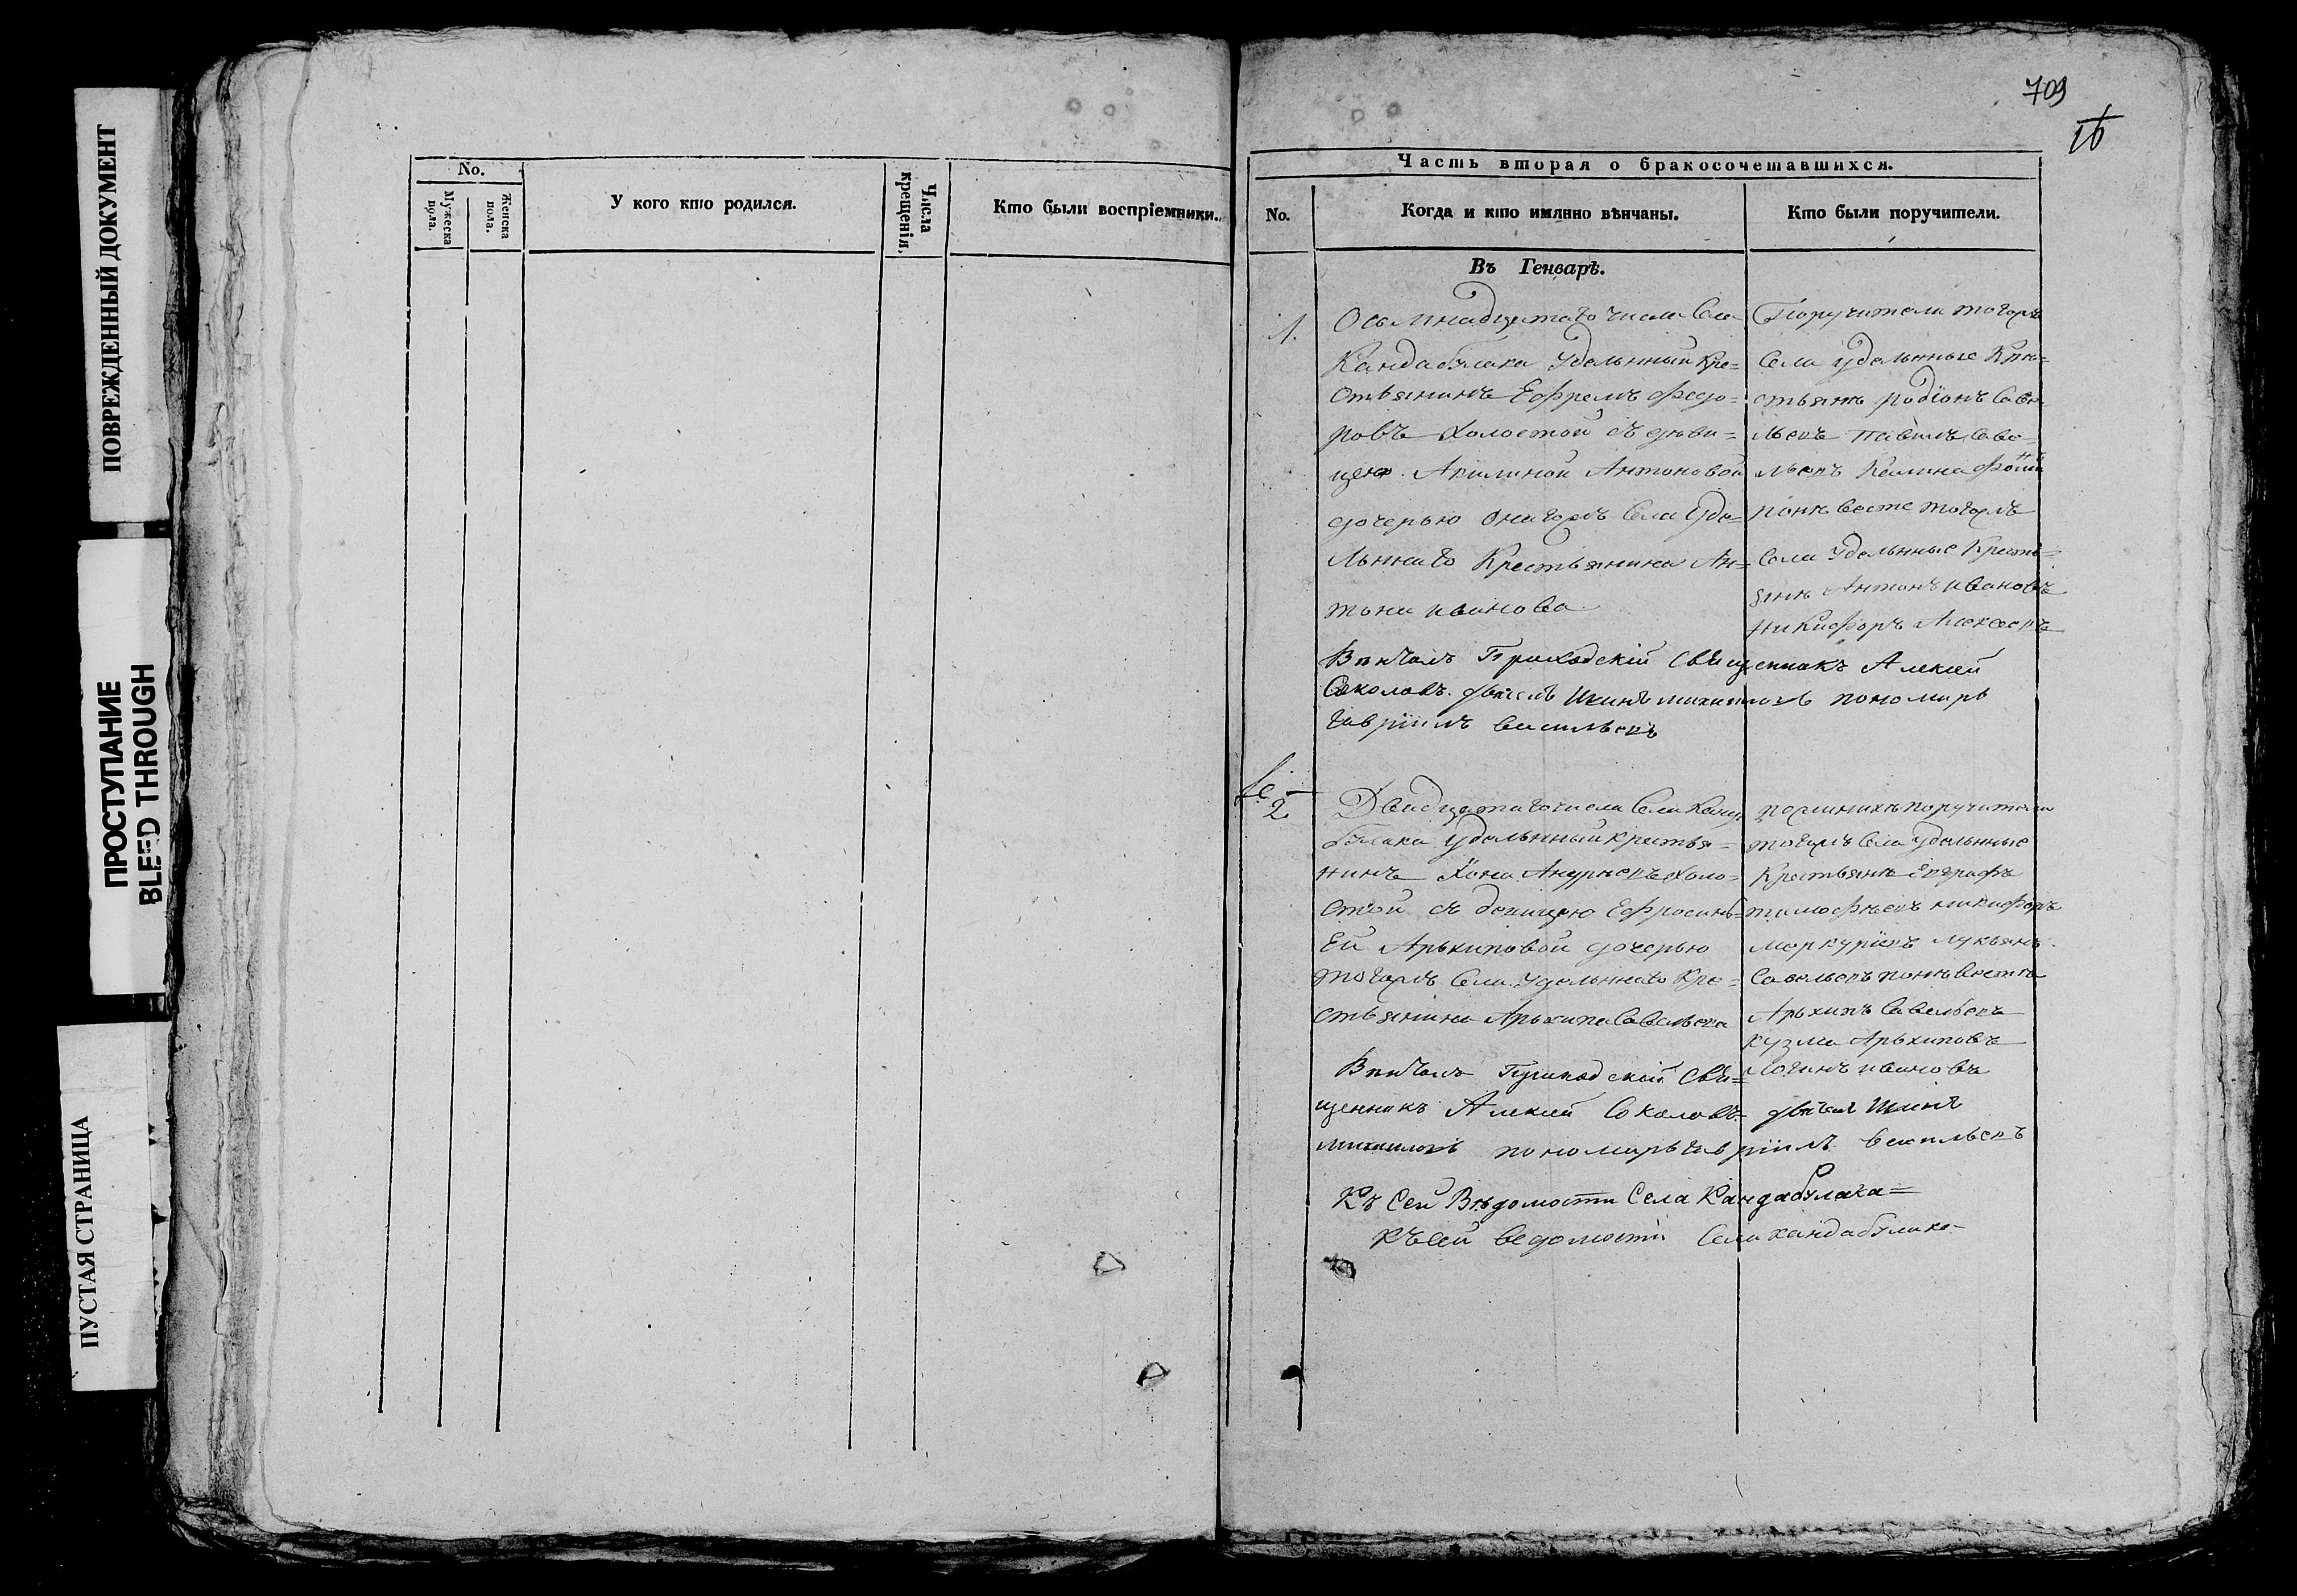 ПОВРЕЖДЕННЫЙ ДОКУМЕНТ
ПРОСТУПАНИЕ
BLEED THROUGH
ПУСТАЯ СТРАНИЦА
No.
Мужеска пола.
Женска пола.
У кого кто родился.
Числа крещенія.
Кто были воспріемники.
709
16
Часть вторая о бракосочетавшихся.
No.
Когда и кто имянно вѣнчаны.
Кто были поручители.
Въ Генварѣ.
1.
Осьмнадцатаго числа Села
Кандабулака Удельнный Кре=
стьянинъ Ефремъ Федо=
ровъ Холостой съ деви=
цею Акилиной Антоновой
дочерью онагожъ Села Уде=
льннаго Крестьянина Ан=
тона иванова
Поручители тогожъ
Села удельнные Кре=
стьянѣ родіонъ Саве
льевъ павилъ саве=
льевъ
по невесте тогожъ
Села Удельнные Кресть=
янѣ Антонъ ивановъ
никифоръ Алексеевъ
Вѣнчалъ Приходскій Священникъ Алексей
Соколовъ. дьячекъ михаиловъ пономарь
гавріилъ васильевъ
2
Двадцатаго числа Села Канда
булака Удельнный крестья=
нинъ Андреевъ холо=
стой съ девицею Ефросинь=
Ей Арьхиповой дочерью
тогожъ Села Удельннаго Кре=
стьянина Арьхипа Савельева
по женихѣ поручители
тогожъ Села удельнные
Крестьянѣ Евграфъ
тимофѣевъ никифоръ
меркуріевъ лукьянъ
Савельевъ по невестѣ
Арьхипъ Савельевъ
кузма Арьхиповъ
Логинъ ивановъ
Вѣнчалъ Приходской Свя=
щенникъ Алексей Соколовъ. дьячекъ
михаиловъ пономарь гавріилъ васильевъ
Къ Сей Вѣдомости Села Кандабулака=
Къ сей ведомости Села кандабулака